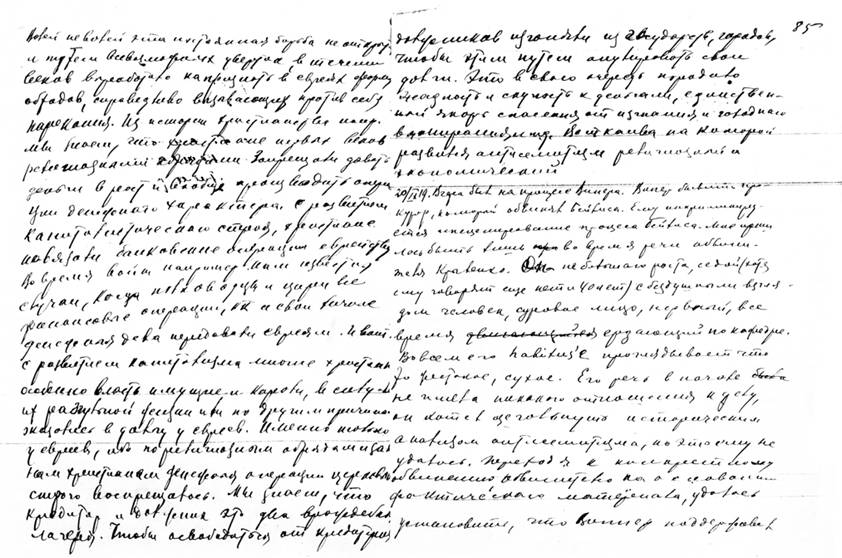 Волей неволей эта постоянная борьба не открыт
и путем всевозможных увертка в течении
веков выработало капризность в евреях форму
обрядов, справедливо вызывающих против себя
нарекания. Из истории христианства напр.
мы знаем, что христиане первых веков
религиозными запрещено давать
деньги в рост и вообще производить опера
ции денежного характера. С развитием
капиталистического строя, христиане
навязали банковские операции еврейству
Во время войн например нам известны
случаи, когда полководцы и цари все
финансовые операции, как и свои личные
денежные дела передавали евреям. И вот
с развитием капитализма многие христиане
особенно власть имущие и короли, в силу
их разгульной жизни или по другим причинам
оказались в долгу у евреев. Именно только
у евреев, ибо по религиозным обрядам
нам христианам денежная операция церковью
строго воспрещалось. Мы знаем, что
кредитор и должник это два враждебных
лагеря. Чтобы освободиться от кредиторов
85
должников изгоняли из государств, городов,
чтобы этим путем аннулировать свои
долги. Это в свою очередь породило
жадность и скупость к деньгам, единствен-
ный якорь спасения от изгнания и голодного
вымирания. Вот канва на которой
развился антисемитизм религиозный и
экономический
20/IX 19. Вчера был на процессе Виппера. Виппер бывший про-
курор, который обвинял Бейлиса. Ему инкриминиру-
ется инсценирование процесса Бейлиса. Мне приш
лось быть лишь во время речи обвини-
теля Крыленко. Он небольшого роста, седой (хотя
ему говорят еще нет и 40 лет) с бездушным взгля-
дом человек, суровое лицо, нервный, все
время ерзающий по кафедре.
Во всем его habitus'е проглядывает что
то жестокое, сухое. Его речь в начале была
не имела никакого отношения к делу,
он хотел щегольнуть историческим
анализом антисемитизма, но это ему не
удалось. Переходя к конкретному
обвинению обвинителю на основании
фактического материала, удалось
установить, что Виппер поддерживал